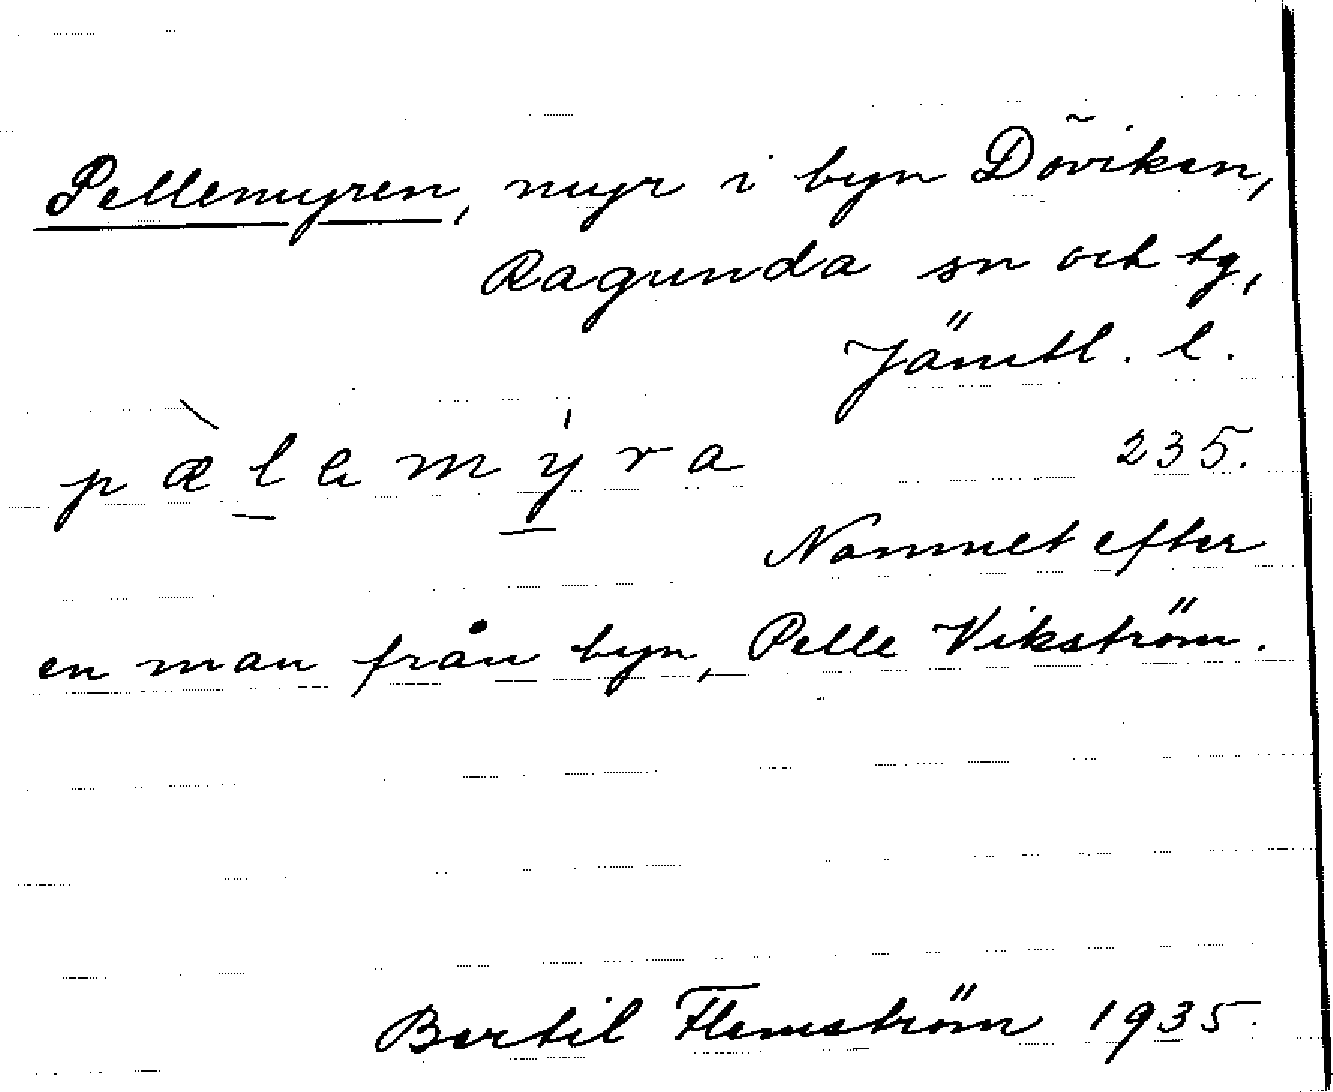 Pellemyren, myr i byn Döviken,
Ragunda sn och tg,
Jämtl. l.
pæ̀lemy̍ra 235.
Namnet efter
en man från byn, Pelle Vikström.
Bertil Flemström 1935.